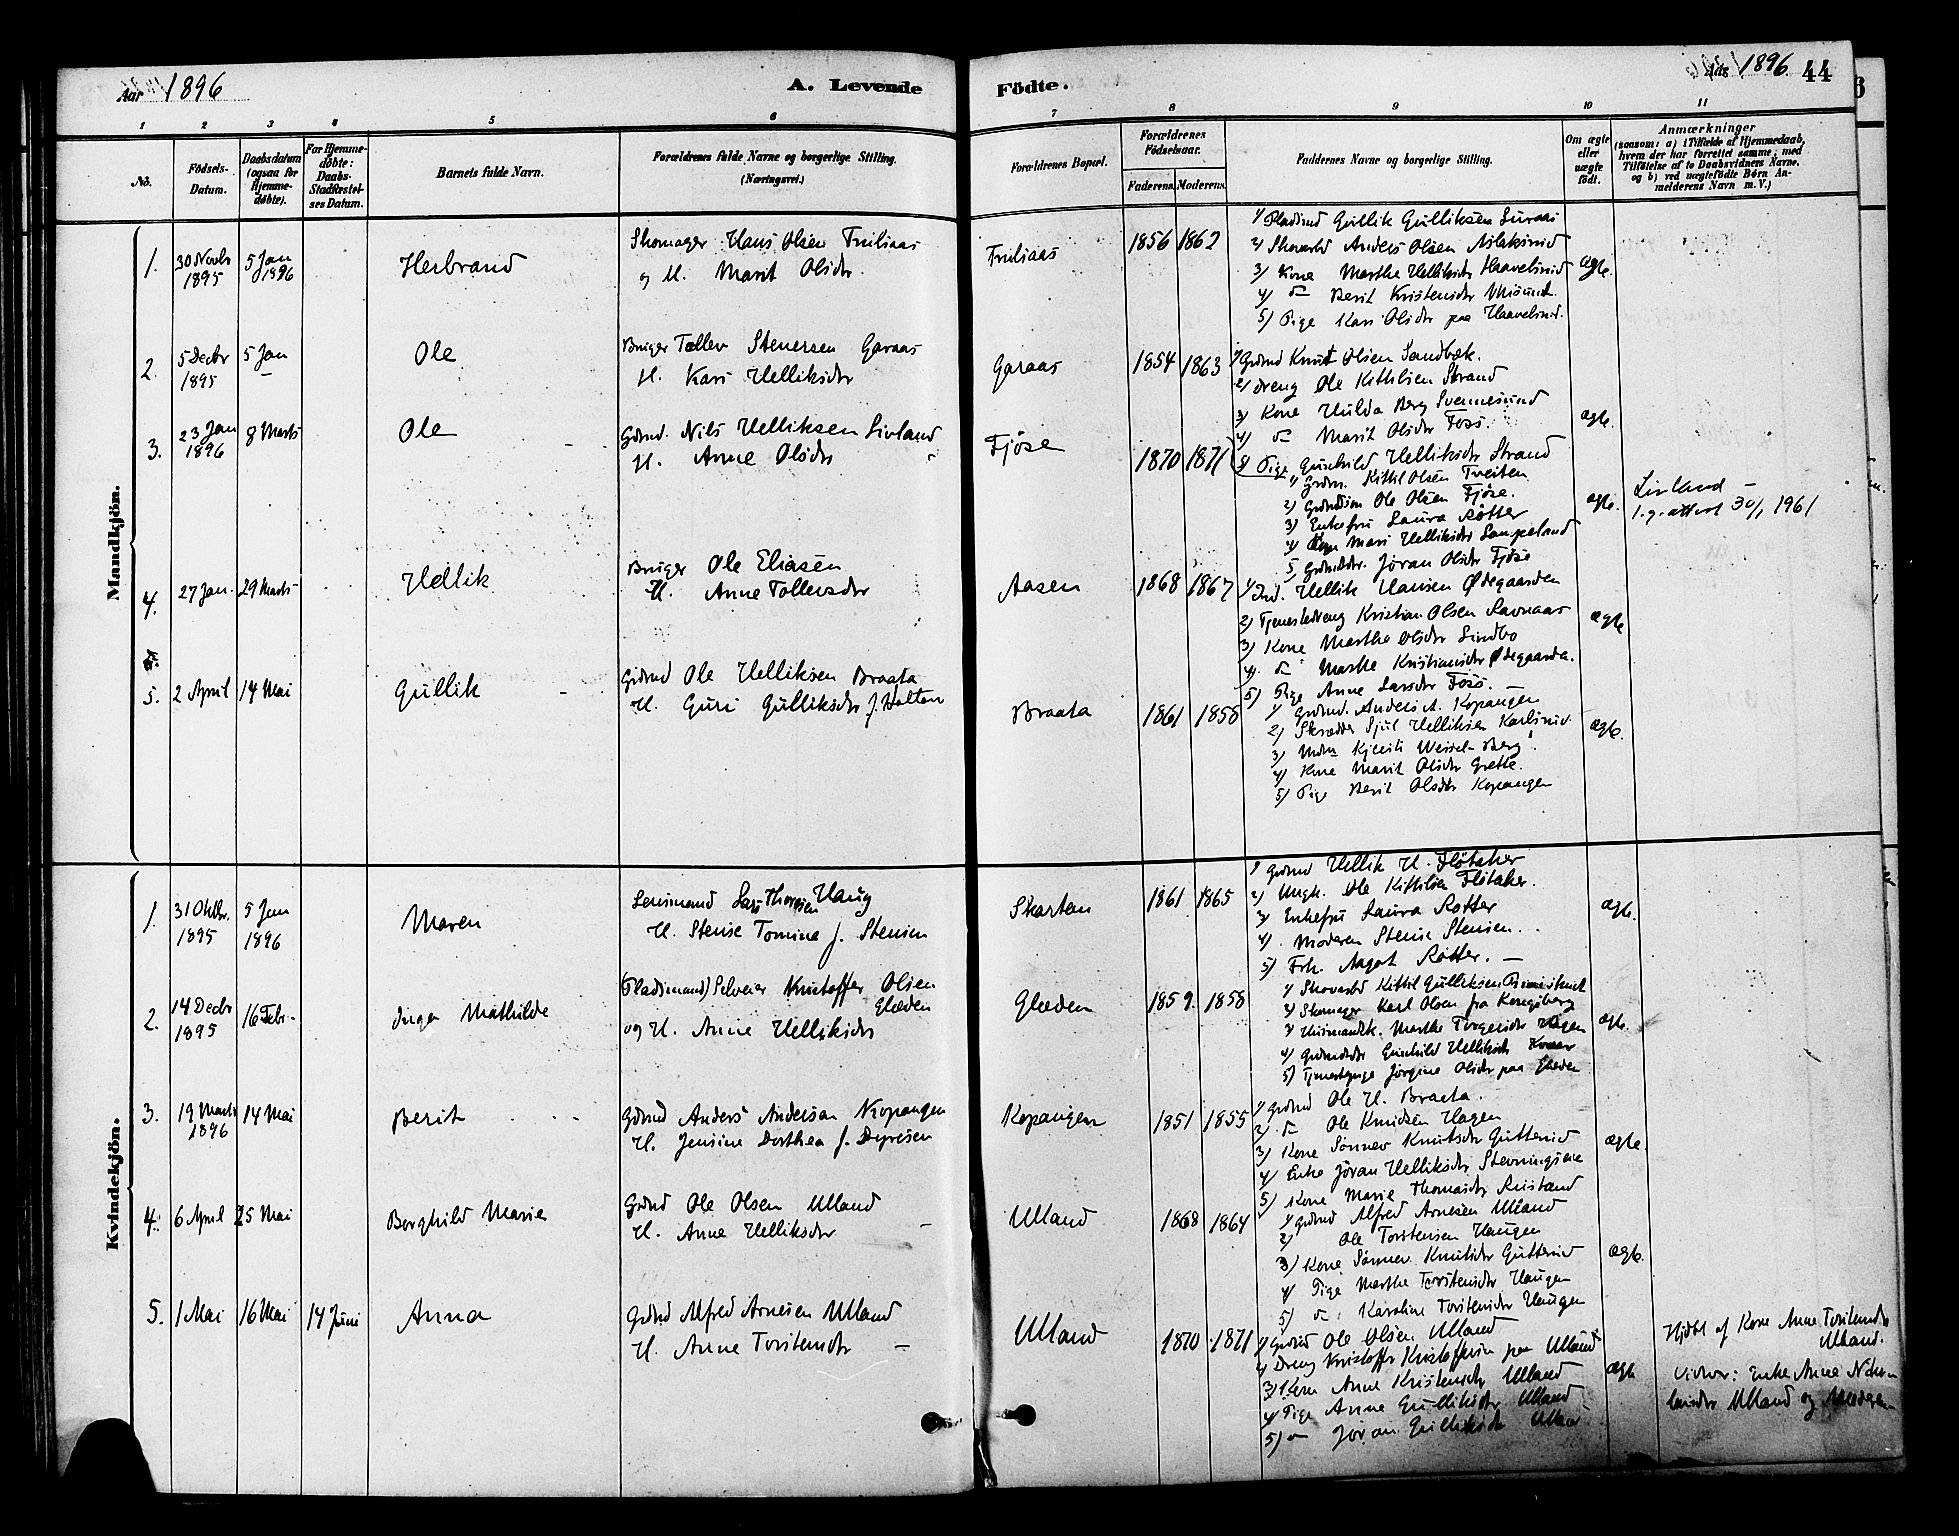 Aar 1896
A. Levende
Födte.
Aar 1896
44
1 2 3 4 5 6
7 8 9 10 11
No.
Födsels-Datum.
Daabsdatum (ogsaa for Hjemme-døbte).
For Hjemme-døbte: Daabs-Stadfæstel-ses Datum.
Barnets fulde Navn.
Forældrenes fulde Navne og borgerlige Stilling.
(Næringsvei.)
Forældrenes Bopæl.
Forældrenes Födselsaar.
Faderens. Moderens.
Faddernes Navne og borgerlige Stilling.
Om ægte eller uægte födt.
Anmærkninger
(saasom: a) i Tilfælde af Hjemmedaab,
hvem der har forrettet samme; med
Tilföielse af to Daabsvidners Navne,
og b) ved uægtefödte Börn An-
melderens Navn m. V.)
Mandkjön.
1. 30 Novbr 1895
5 Jan 1896
Herbrand
Skomager Hans Olsen Fruliaas
og H. Marit Olsdr.
Fruliaas
1856 1862
1) Pladsmd Gullik Gulliksen Luraas
2) Skovarb Anders Olsen Aslaksrud
3) Kone Marthe Helliksdr Haavelsrud
4) do Berit Kristensdr
5) Pige Kari Olsdr paa Haavelsrud.
ægte.
2. 5 Decbr 1895
5 Jan
Ole
Bruger Tollev Stenersen Garaas
H. Kari Helliksdr
Garaas
1854 1863
1) Grdmd Knut Olsen Sandbæk.
2) dreng Ole Kittilsen Strand
3) Kone Hulda Berg Svennesund
4) do Marit Olsdr Foss.
5) Pige Gunhild Helliksdr Strand
ægte.
3. 23 Jan 1896
8 Marts
Ole
Grdmd. Nils Helliksen Livland
H. Anne Olsdr
Fjøse
1870 1871
1) Grdm. Kittil Olsen Tveiten
2) Grdmdsøn Ole Olsen Fjøse.
3) Enkefru Laura Rotter
4) Kone Mari Helliksdr Lampeland
5) Grdmddr. Jøran Olsdr Fjøse
ægte.
Livland –
l.g. attest 30/1 1961
4. 27 Jan.
29 Marts
Hellik
Bruger Ole Eliasen
H. Anne Tollevsdr
Aasen
1868 1867
1) Ind. Hellik Hansen Ødegaarden
2) Tjenestedreng Kristian Olsen Ravnaas
3) Kone Marthe Olsdr Lindbo
4) do Marthe Kristiansdr Ødegaarden.
5) Pige Anne Larsdr Foss.
ægte
5. 2 April
14 Mai
Gullik
Grdmd Ole Helliksen Braata
H. Guri Gulliksdr f. Holtan
Braata
1861 1858
1) Grdmd. Anders A. Kopangen
2) Skrædder Sjul Helliksen Karlsrud.
3) Mdm Kjersti Wessel-Berg.
4) Kone Marit Olsdr Grette.
5) Pige Berit Olsdtr Kopangen
ægte.
Kvindekjön.
1. 31 Oktbr. 1895
5 Jan 1896
Maren
Lensmand Lars Thorsen Haug
H. Stense Tomine f. Stensen
Skartan
1861. 1865
1) Grdmd Hellik H. Fløtaker
2) Ungk. Ole Kittilsen Fløtaker.
3) Enkefru Laura Rotter
4) Moderen Stense Stensen.
5) Frk. Aagot Rotter. –
ægte.
2. 14 Decbr 1895
16 Febr-
Inga Mathilde
(Pladsmand) Selveier Kristoffer Olsen Glæden
og H. Anne Helliksdr
Glæden
1859. 1858
1) Skovarbd Kittil Gulliksen
2) Skomager Karl Olsen paa Kongsberg
3) Husmandsk. Marthe Torgersdr Hagen
4) Grdmddtr Gunhild Helliksdr
5) Tjenestepige Jørgine Olsdr paa Glæden
ægte.
3. 19 Marts 1896
14 Mai
Berit
Grdmd Anders Andersen Kopangen
H. Jensine Dorthea f. Dyresen
Kopangen
1851 1855
1) Grdmd Ole H. Braata.
2) do Ole Knudsen Hagen
3) Kone Sønnev Knutsdr Gutterud
4) Enke Jøran Helliksdr
5) Kone Marie Thomasdr Ristand
ægte.
4. 6 April
25 Mai
Borghild Marie
Grdmd Ole Olsen Ulland
H. Anne Helliksdr
Ulland
1868 1864
1) Grdmd Alfred Arnesen Ulland
2) Ole Torstensen Haugen
3) Kone Sønnev Knutsdr Gutterud
4) Pige Marthe Torstensdr Haugen
5) do Karoline Torstensdr Haugen
ægte.
5. 1 Mai
16 Mai
14 Juni
Anna
Grdmd Alfred Arnesen Ulland
H. Anne Torstensdtr
Ulland
1870 1871
1) Grdmd Ole Olsen Ulland
2) Dreng Kristoffer Kristoffersen paa Ulland
3) Kone Anne Kristensdr Ulland
4) Pige Anne Gulliksdr Ulland
5) do Jøran Gulliksdr Ulland
ægte
Hjdbt af Kone Anne Torstensdr Ulland.
Vidner: Enke Anne
Ulland og Moderen